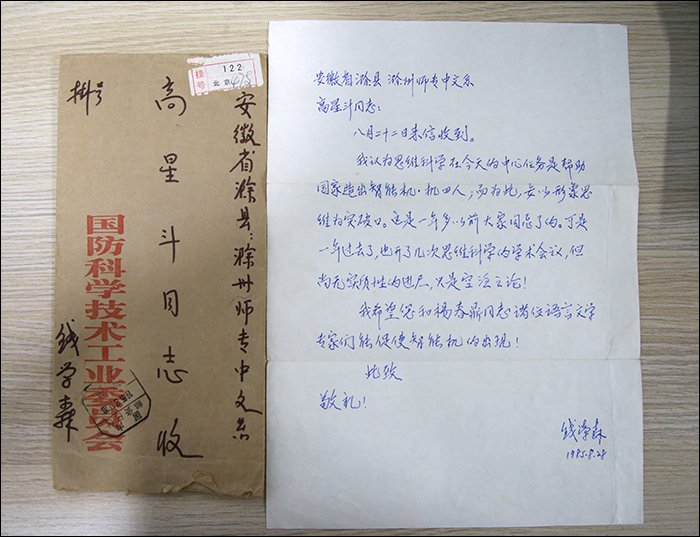 挂号
122
北京
挂号
安徽省滁县：滁州师专中文系
高星斗同志收
国防科学技术工业委员会
钱学森
安徽省滁县 滁州师专中文系
高星斗同志：
八月二十二日来信收到。
我认为思维科学在今天的中心任务是帮助
国家造出智能机·机四人；而为此，要以形象思
维为突破口。这是一年多以前大家同意了的。可是
一年过去了，也开了几次思维科学的学术会议，但
尚无实质性的进展，只是空泛立论！
我希望您和杨春鼎同志诸位语言文学
专家们能促使智能机的出现！
此致
敬礼！
钱学森
1985.8.28